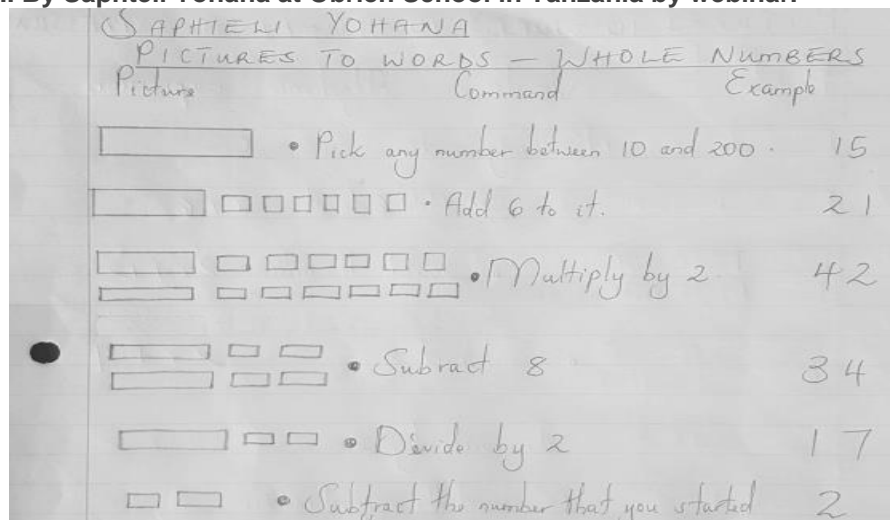 By Saphieli Yohana at Obrien School in Tanzania by webinar.
SAPHIELI YOHANA
PICTURES TO WORDS – WHOLE NUMBERS
Picture Command Example
• Pick any number between 10 and 200. 15
• Add 6 to it. 21
• Multiply by 2 42
• Subract 8 34
• Divide by 2 17
• Subtract the number that you started 2